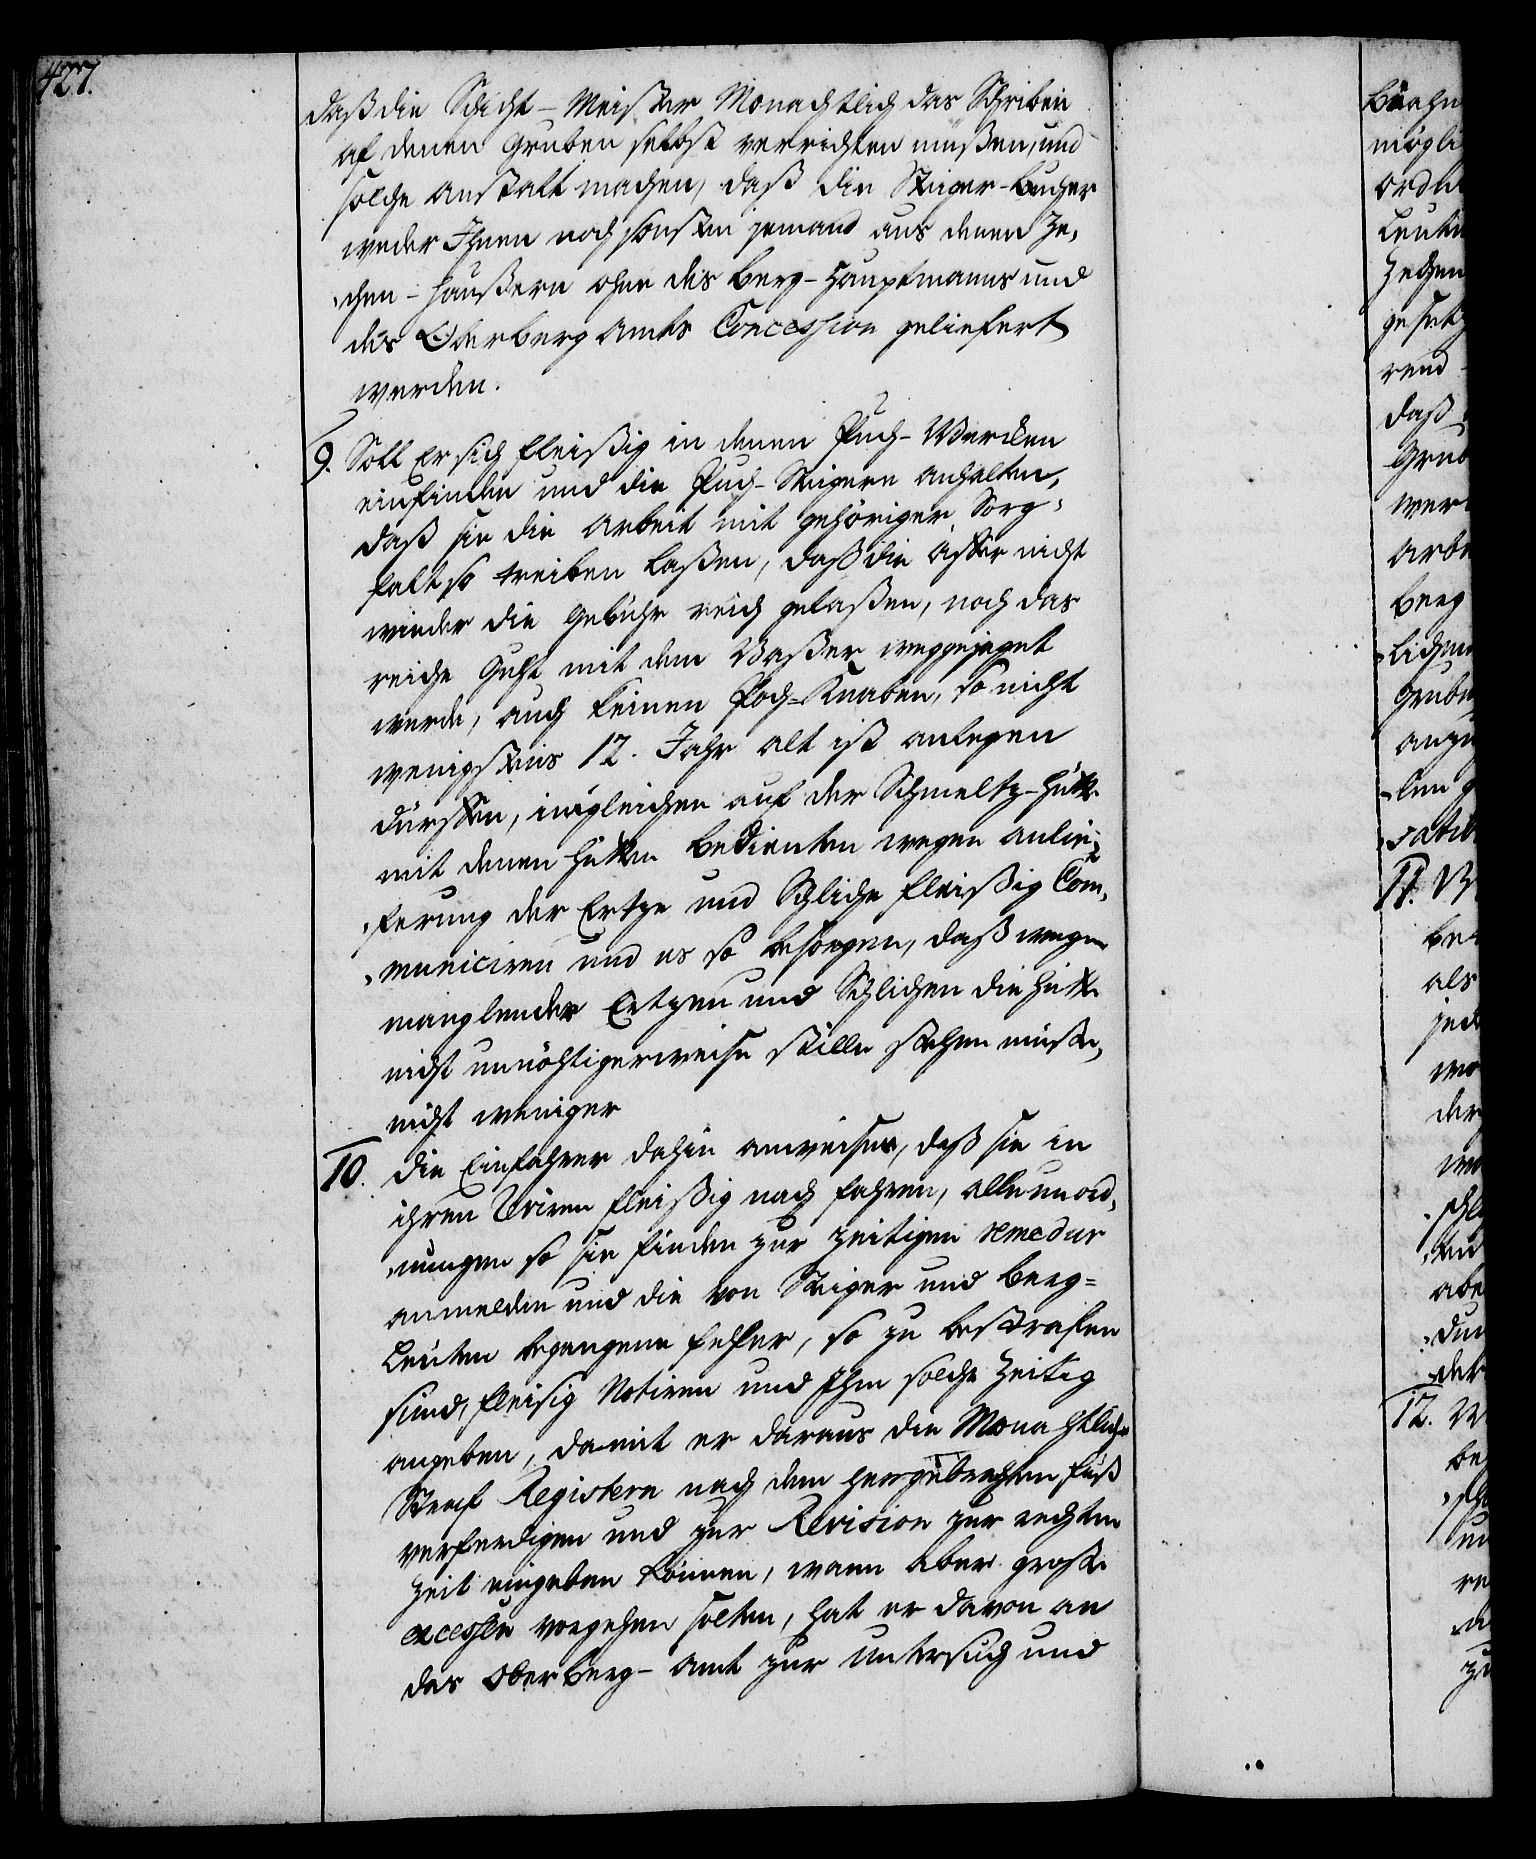 427.
daß die Schicht-Meister Monachtlich das Schreiben
af denen Gruben selbst verrichten müßen, und
solche anstalt machen, daß die Steiger-bücher
weder Ihnen noch sonsten jemand aus denen Ze,
,chen-häußern ohne des Berg-Hauptmanns und
des Oberberg Amts Concession geliefert
werden.
9. Soll Er sich fleißig in denen Puch-Wercken
einfinden und die Puch-Steigere anhalten,
daß sie die Arbeit mit gehöriger Sorg,
falt so treiben laßen, daß die After nicht
wieder die Gebühr reich gelaßen, noch das
reiche Guht mit dem Waßer weggejaget
werde, auch keinen Poch-Knaben, so nicht
wenigstens 12. Jahr alt ist anlegen
dürffen, ingleichen auf der Schmeltz-hütte
mit denen hütten bedienten wegen anlie,
,ferung der Ertze und Schliche fleißig Com,
,municiren und es so besorgen, daß wegen
manglender Ertzen und Schlichen die hütte
nicht unnöhtigerweise stille stehen müße,
nicht weniger
10. die Einfahrer dahin anweisen, daß sie in
ihren Reviren fleißig nach fahren, alle unord,
,nungen so sie finden zur zeitigen remedur
anmelden und die von Steiger und Berg=
Leuten begangene fehler, so zu bestrafen
sind, fleisig Notiren und Ihm solche Zeitig
angeben, damit er daraus die Monachtliche
Straf Registern nach dem hergebrachten fuß
verferdigen und zur Revision zur rechten
Zeit eingeben können, wann aber große
excessen vorgehen solten, hat er davon an
das Oberberg-Amt zur untersuch und
11.
als
12.